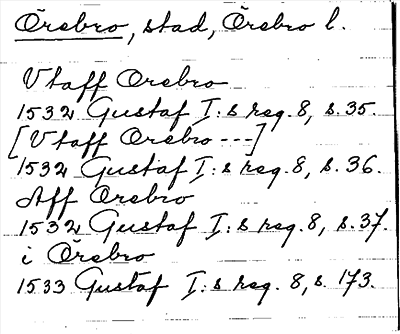 Örebro, stad, Örebro l.
Vtaff Orebro
1532 Gustaf I:s reg. 8, s. 35.
[Vtaff Orebro ---]
1532 Gustaf I:s reg. 8, s. 36.
Aff Orebro
1532 Gustaf I:s reg. 8, s. 37.
i Örebro
1533 Gustaf I:s reg. 8, s. 173.